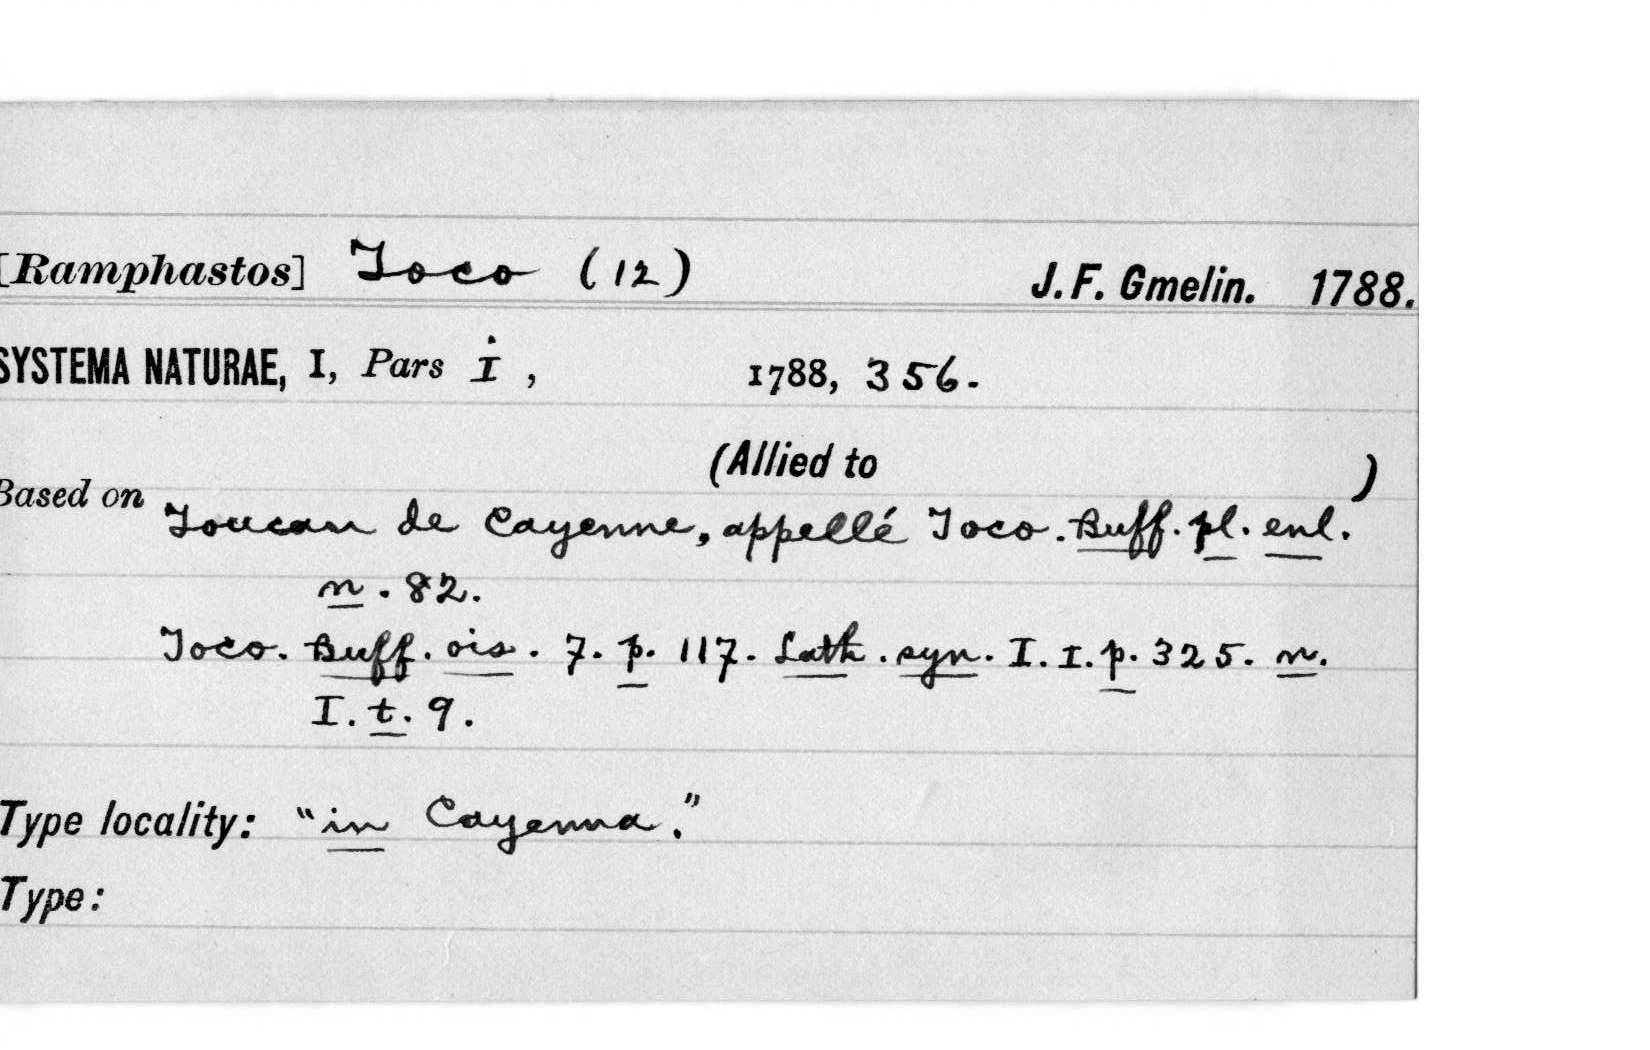 [Ramphastos] Toco (12) J. F. Gmelin. 1788.
SYSTEMA NATURAE, I, Pars I, 1788, 356.
(Allied to )
Based on Toucan de Cayenne, appellé Toco. Buff. pl. enl.
n. 82.
Toco. Buff. ois. 7. p. 117. Lath. syn. I. I. p. 325. n.
I. t. 9.
Type locality: "in Cayenna."
Type: